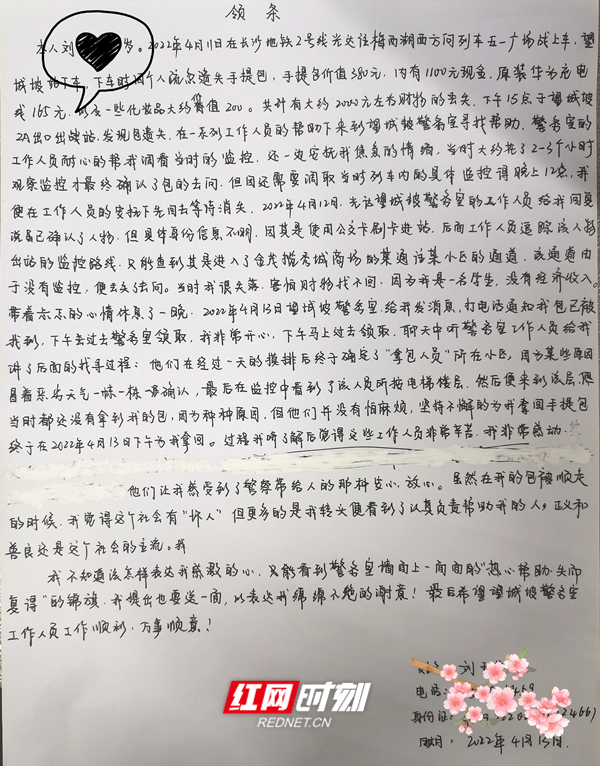 领条
本人刘 岁。2022年4月11日在长沙地铁2号线光达往梅西湖西方向列车五一广场站上车，望
城坡站下车。下车时因个人疏忽遗失手提包，手提包价值380元，内有1100元现金，原装华为充电
线165元 一些化妆品大约价值200。共计有大约2000元左右财物的丢失。下午15点于望城坡
2A出口出站，发现包遗失，在一系列工作人员的帮助下来到望城坡警务室寻找帮助，警务室的
工作人员耐心的帮我调看当时的监控，还一边安抚我焦急的情绪，当时大约花了2-3个小时
观察监控才最终确认了包的去向，但因还需要调取当时列车内的具体监控得晚上12点，我
便在工作人员的安抚下先回去等待消失，2022年4月12日，光达望城坡警务室的工作人员给我回复
说已确认了人物，但具体身份信息不明，因其是使用公交卡刷卡进站，后面工作人员追踪该人物
出站的监控路线，只能查到其是进入了金茂揽秀城商场的某通往某小区的通道，该通道由
于没有监控，便丢失去向。当时我很失落，害怕财物找不回，因为我是一名学生，没有经济收入。
带着忐忑的心情休息了一晚，2022年4月13日望城坡警务室给我发消息，打电话通知我包已被
找到，下午去过去警务室领取，我非常开心，下午马上过去领取，聊天中听警务室工作人员给我
讲了后面的找寻过程：他们在经过一天的摸排后终于确定了"拿包人员"所在小区，因为某些原因
冒着恶劣天气一栋一栋一层确认，最后在监控中看到了该人员所按电梯楼层，然后便来到该层，但
当时都还没有拿到我的包，因为种种原因，但他们并没有怕麻烦，坚持不懈的为我拿回手提包
终于在2022年4月13日下午为我拿回。过程我听了解后觉得这些工作人员非常辛苦，我非常感动，
他们让我感受到了警察带给人的那种安心、放心。虽然在我的包被顺走
的时候，我觉得这个社会有"坏人"但更多的是我转头便看到了认真负责帮助我的人，正义和
善良还是这个社会的主流。我
我不知道该怎样表达我感激的心，只能看到警务室墙面上一面面的"热心帮助·失而
复得"的锦旗，我提出也要送一面，以表达我绵绵不绝的谢意！最后希望望城坡警务室
工作人员工作顺利，万事顺意！
刘
电话：
身份证：
日期：2022年4月13日.
红网时刻
REDNET.CN